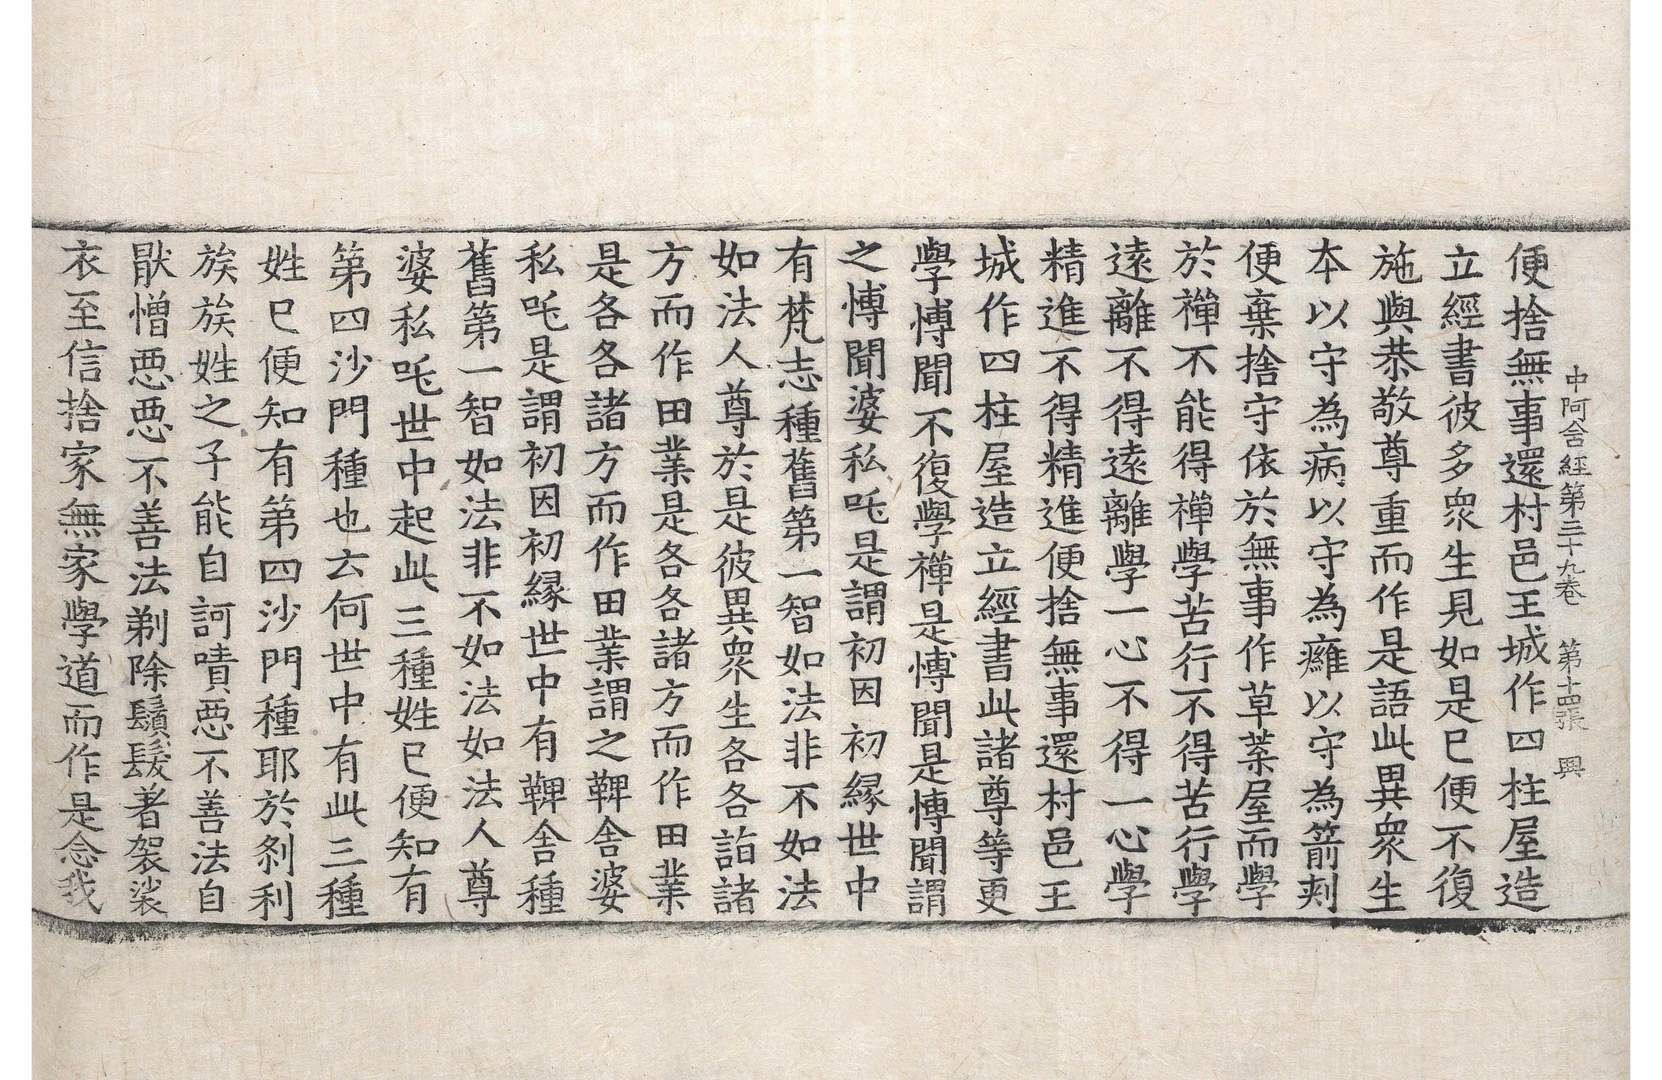 中阿含經第三十九卷　第十四張　興
便捨無事還村邑王城作四柱屋造
立經書彼多衆生見如是已便不復
施與恭敬尊重而作是語此異衆生
本以守為病以守為癰以守為箭刾
便棄捨守依於無事作草葉屋而學
於禪不能得禪學苦行不得苦行學
遠離不得遠離學一心不得一心學
精進不得精進便捨無事還村邑王
城作四柱屋造立經書此諸尊等更
學慱聞不復學禪是慱聞是慱聞謂
之慱聞婆私吒是謂初因初緣世中
有梵志種舊第一智如法非不如法
如法人尊於是彼異衆生各各詣諸
方而作田業是各各諸方而作田業
是各各諸方而作田業謂之鞞舍婆
私吒是謂初因初緣世中有鞞舍種
舊第一智如法非不如法如法人尊
婆私吒世中起此三種姓已便知有
第四沙門種也云何世中有此三種
姓已便知有第四沙門種耶於刹利
族族姓之子能自訶嘖惡不善法自
猒憎惡惡不善法剃除鬚髮著袈裟
衣至信捨家無家學道而作是念我